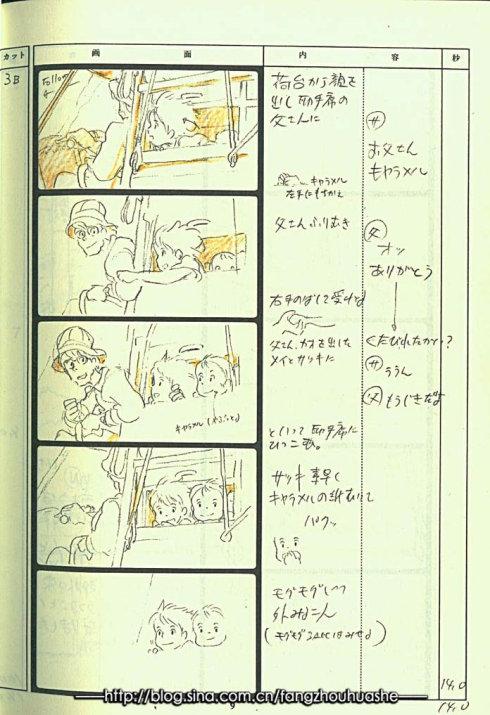 カット
画 面
内 容
秒
3B
Follow
荷台から顔を
出し 助手席の
父さんに
サ
お父さん
キャラメル
キャラメル
父さんふりむき
父
オッ
ありがとう
右手のばして受けとる
くたびれたかい?
父さん、カオを出した
メイとサツキに
サ
ううん
父
もうじきだよ
キャラメル
といって 助手席に
ひっこむ。
サツキ 素早く
キャラメルの紙むいて
パクッ
モグモグしつつ
外みる二人
14.0
14.0
http://blog.sina.com.cn/fangzhouhuashe